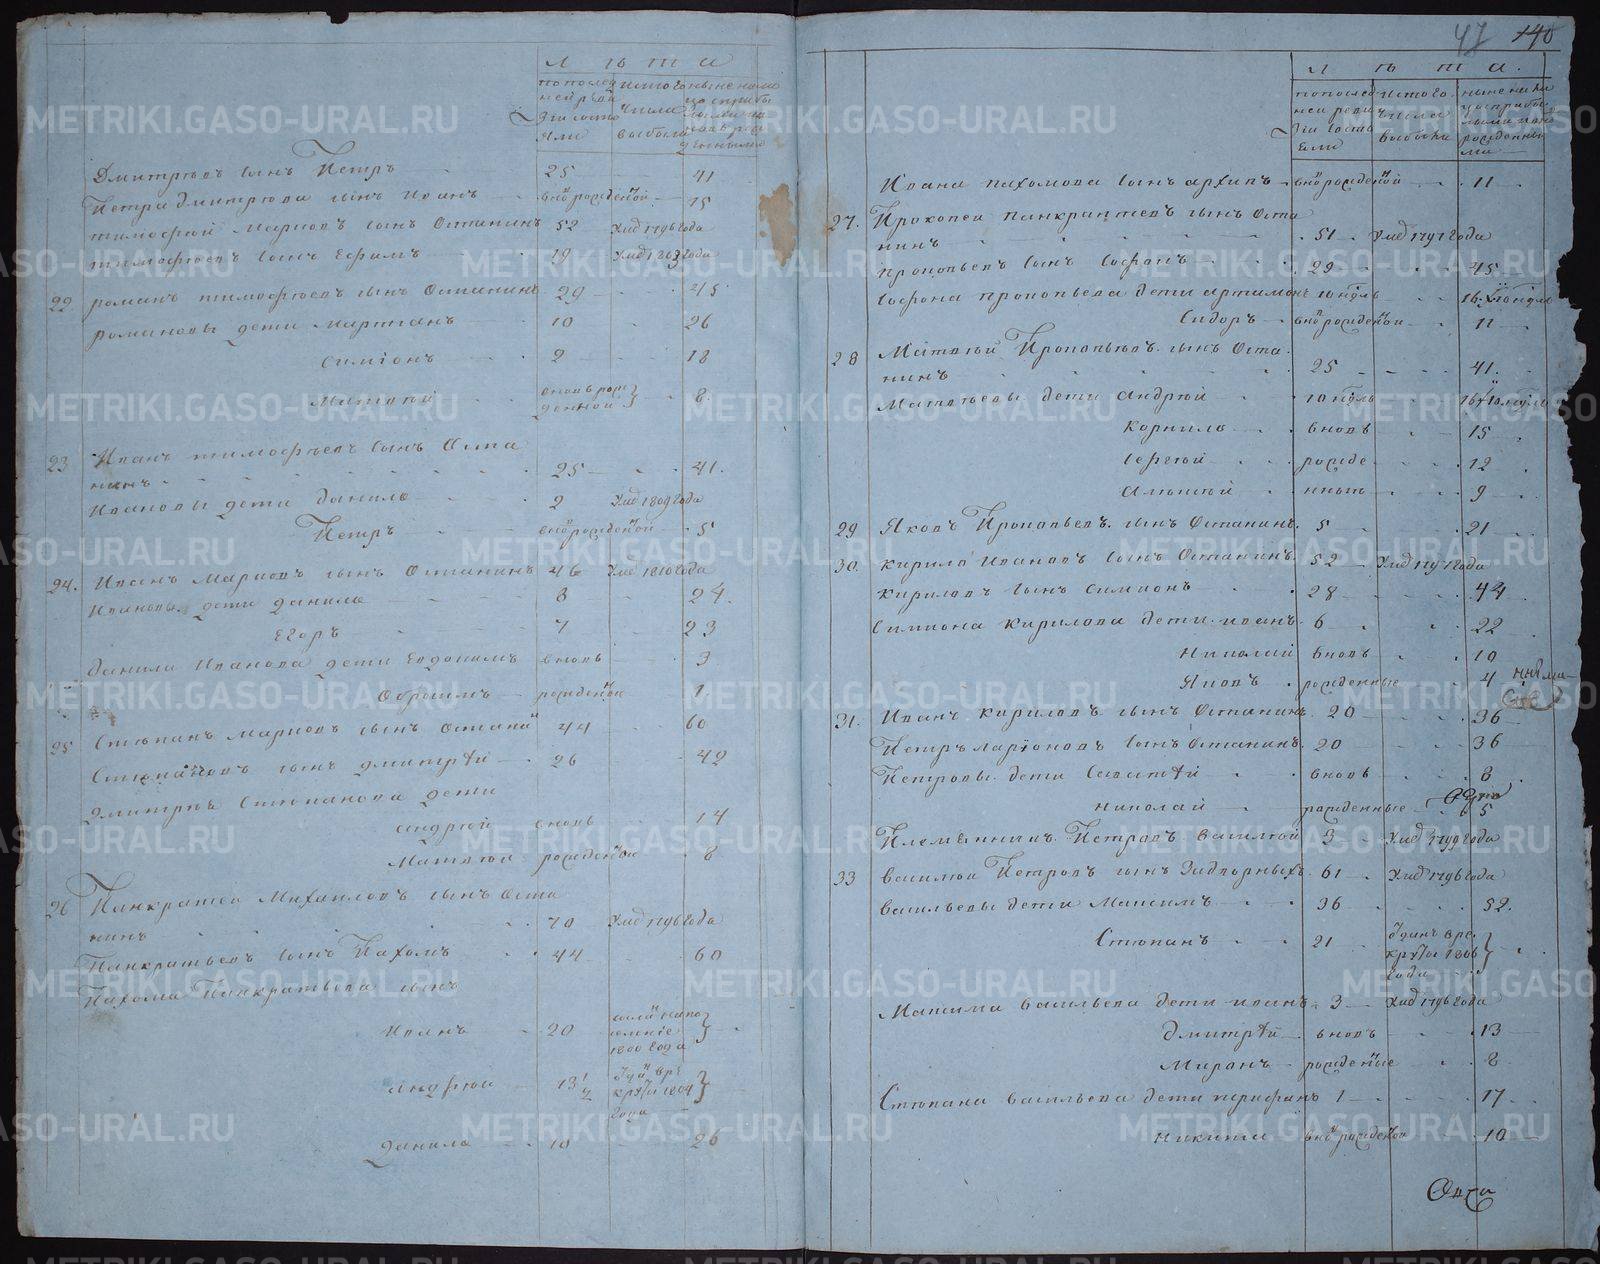 лѣта
по послед
ней реви
зіи состо
яли
из того
числа
выбыло
ныне нали
Дмитріевъ сынъ Петръ 25 41
Петра Дмитріева сынъ Иванъ вновь рожденной 15
Тимофей Марковъ сынъ Останинъ 52 Умер 1796 года
Тимофеевъ сынъ Ефимъ 19 Умер 1803 года
22 Романъ Тимофеевъ сынъ Останинъ 29 45
Романовы дети Мартианъ 10 26
Симіонъ 2 18
Матвей вновь рож
денной 8
23 Иванъ Тимофеевъ сынъ Оста
нинъ 25 41
Ивановы дети Данило 2 Умер 1809 года
Петръ вновь рожденной 5
24. Иванъ Марковъ сынъ Останинъ 46 Умер 1810 года
Ивановы дети Данило 8 24.
Егоръ 7 23
Данила Иванова дети Евдокимъ вновь 3
Ефроимъ рожденой 1
25 Степанъ Марковъ сынъ Останинъ 44 60
Степановъ сынъ Дмитрей 26 42
Дмитрия Степанова дети
Андрей вновь 14
Матвей рожденой 8
26 Панкратей Михаиловъ сынъ Оста
нинъ 70 Умер 1796 года
Панкратьевъ сынъ Пахомъ 44 60
Пахома Панкратьева сынъ
Иванъ 20
1800 года
Андрей 13 1/2 отдан в ре
круты 1804
года
Данило 10 26
47 140
лѣта.
по послед
ней реви
зіи состо
яли
из того
числа
выбыло
ныне на ли
Ивана Пахомова сынъ Архипъ вновь рожденой 11
27. Прокопей Панкратьевъ сынъ Оста
нинъ 51 Умер 1797 года
Прокопьевъ сынъ Софонъ 29 45
Софона Прокопьева дети Артимонъ
Сидоръ вновь рожденой 11
28 Матвей Прокопьевъ сынъ Оста
нинъ 25 41.
Матвеевы дети Андрей
Корнило вновь 15
Сергей рожде 12
Алексей нные 9
29 Яковъ Прокопьевъ сынъ Останинъ. 5 21
30. Кирило Ивановъ сынъ Останинъ. 52 Умер 1797 года
Кириловъ сынъ Симионъ 28 44
Симиона Кирилова дети Иванъ 6 22
Николай вновь 10
Яковъ рожденные 4
31. Иванъ Кириловъ сынъ Останинъ 20 36
Петръ Ларіоновъ сынъ Останинъ. 20 36
Петровы дети Саватей вновь 8
Николай рожденные 5
Племянникъ Петровъ Василей 3 Умер 1799 года
33 Василей Петровъ сынъ Задворныхъ 61 Умер 1796 года
Васильевы дети Максимъ 36 52.
Степанъ 21 отданъ в ре
круты 1806
года
Максима Васильева дети Иванъ 3 Умер 1796 года
Дмитрей вновь 13
Миронъ рожденые 8
Степана Васильева дети Перифанъ 1 17
Никита вновь рожденой 10